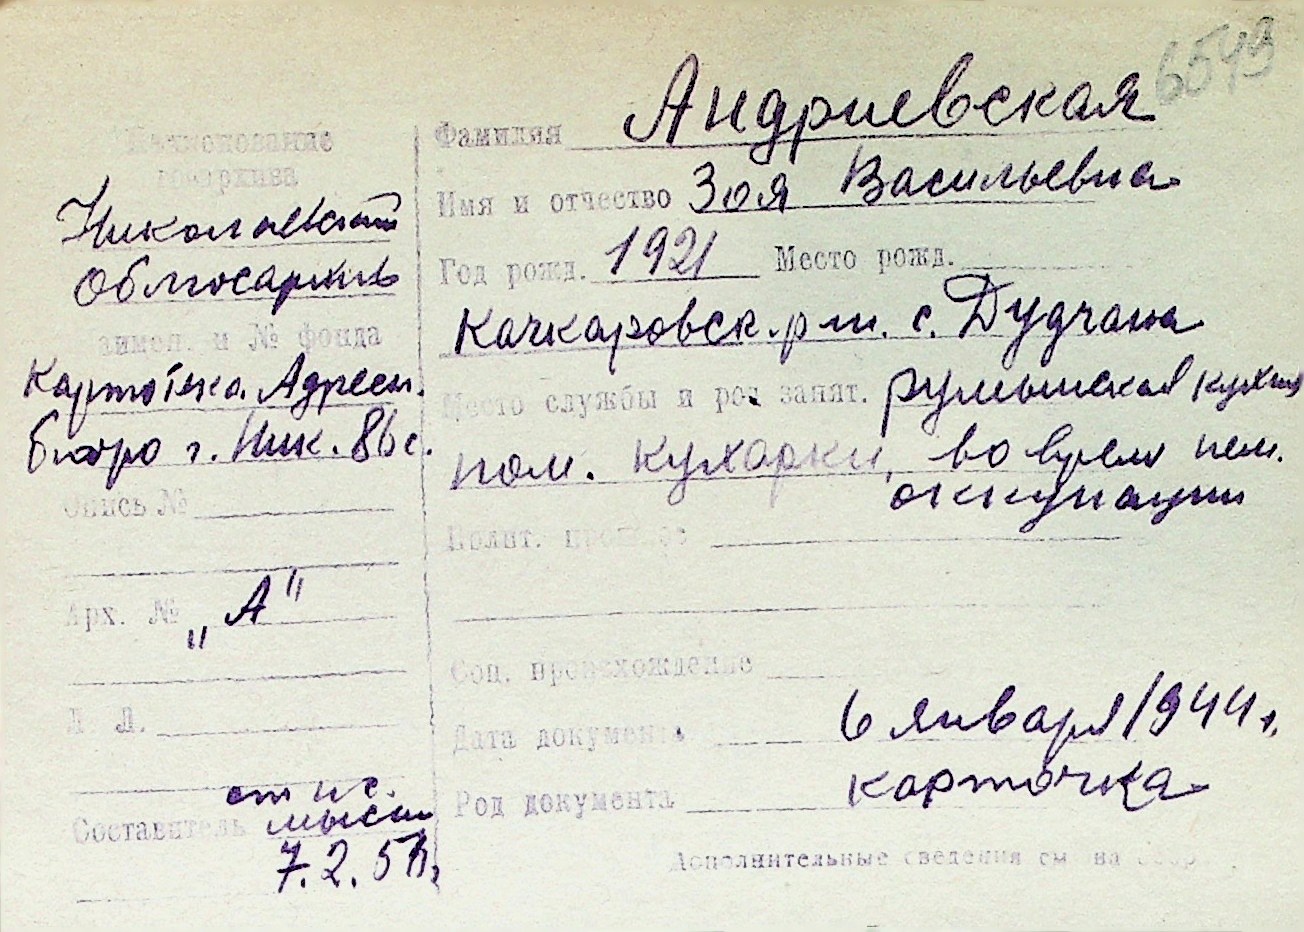 6543
Наименование
госархива
Николаевский
Облгосархив
аимен. и № фонда
Картотека Адресн.
бюро г. Ник. 86 с.
Опись №
Арх. № „А"
Л. Л.
Составитель
7.2.5
Фамилия Андриевская
Имя и отчество Зоя Васильевна
Год рожд. 1921 Место рожд.
Качкаровск. р-н. с. Дудчана
Место службы и род занят. румынская кухня
пом. кухарки, во время нем.
оккупации
Полит. прошлое
Соц. происхождение
Дата документа 6 января 1944 г.
Род документа карточка
Дополнительные сведения см на обор